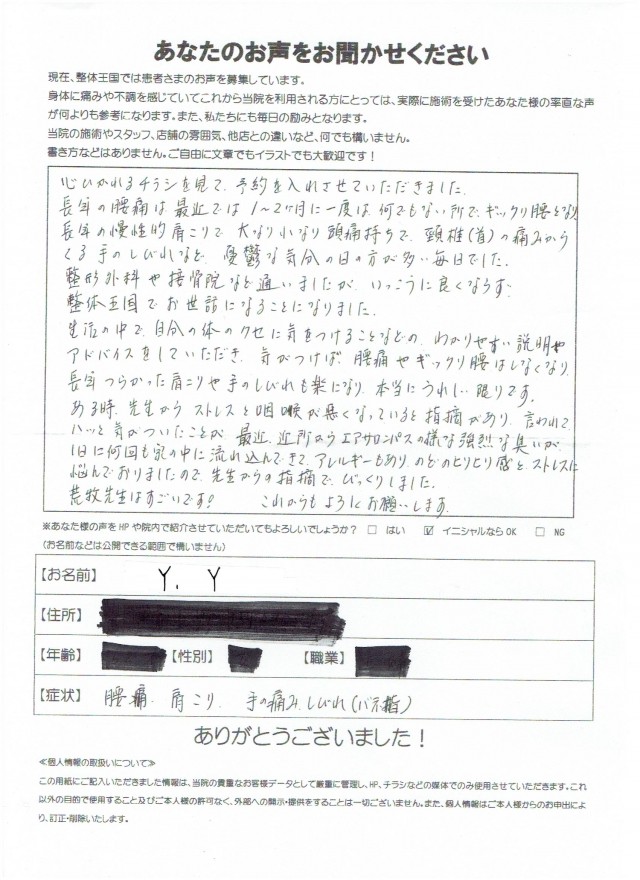 あなたのお声をお聞かせください
現在、整体王国では患者さまのお声を募集しています。
身体に痛みや不調を感じていてこれから当院を利用される方にとっては、実際に施術を受けたあなた様の率直な声
が何よりも参考になります。また、私たちにも毎日の励みとなります。
当院の施術やスタッフ、店舗の雰囲気、他店との違いなど、何でも構いません。
書き方などはありません。ご自由に文章でもイラストでも大歓迎です！
心ひかれるチラシを見て、予約を入れさせていただきました。
長年の腰痛は最近では1〜2ケ月に一度は、何でもない所で、ギックリ腰となり
長年の慢性的肩こりで、大なり小なり頭痛持ちで、頸椎(首)の痛みから
くる手のしびれなど、憂鬱な気分の日の方が多い毎日でした。
整形外科や接骨院など通いましたが、いっこうに良くならず、
整体王国でお世話になることになりました。
生活の中で、自分の体のクセに気をつけることなどの、わかりやすい説明や
アドバイスをしていただき、気がつけば、腰痛やギックリ腰はしなくなり、
長年つらかった肩こりや手のしびれも楽になり、本当にうれしい限りです。
ある時、先生から ストレスと咽喉が悪くなっていると指摘があり、言われて
ハッと気がついたことが、最近、近所からエアサロンパスの様な強烈な臭いが、
1日に何回も家の中に流れ込んできて、アレルギーもあり、のどのヒリヒリ感とストレスに
悩んでおりましたので、先生からの指摘で、びっくりしました。
荒牧先生はすごいです! これからもよろしくお願いします。
※あなた様の声をHPや院内で紹介させていただいてもよろしいでしょうか？ □ はい ☑ イニシャルならOK □ NG
(お名前などは公開できる範囲で構いません)
【お名前】 Y. Y
【住所】
【年齢】 【性別】 【職業】
【症状】 腰痛、肩こり、手の痛み、しびれ(バネ指)
ありがとうございました！
≪個人情報の取扱いについて≫
この用紙にご記入いただきました情報は、当院の貴重なお客様データとして厳重に管理し、HP、チラシなどの媒体でのみ使用させていただきます。これ
以外の目的で使用すること及びご本人様の許可なく、外部への開示・提供をすることは一切ございません。また、個人情報はご本人様からのお申出によ
り、訂正・削除いたします。